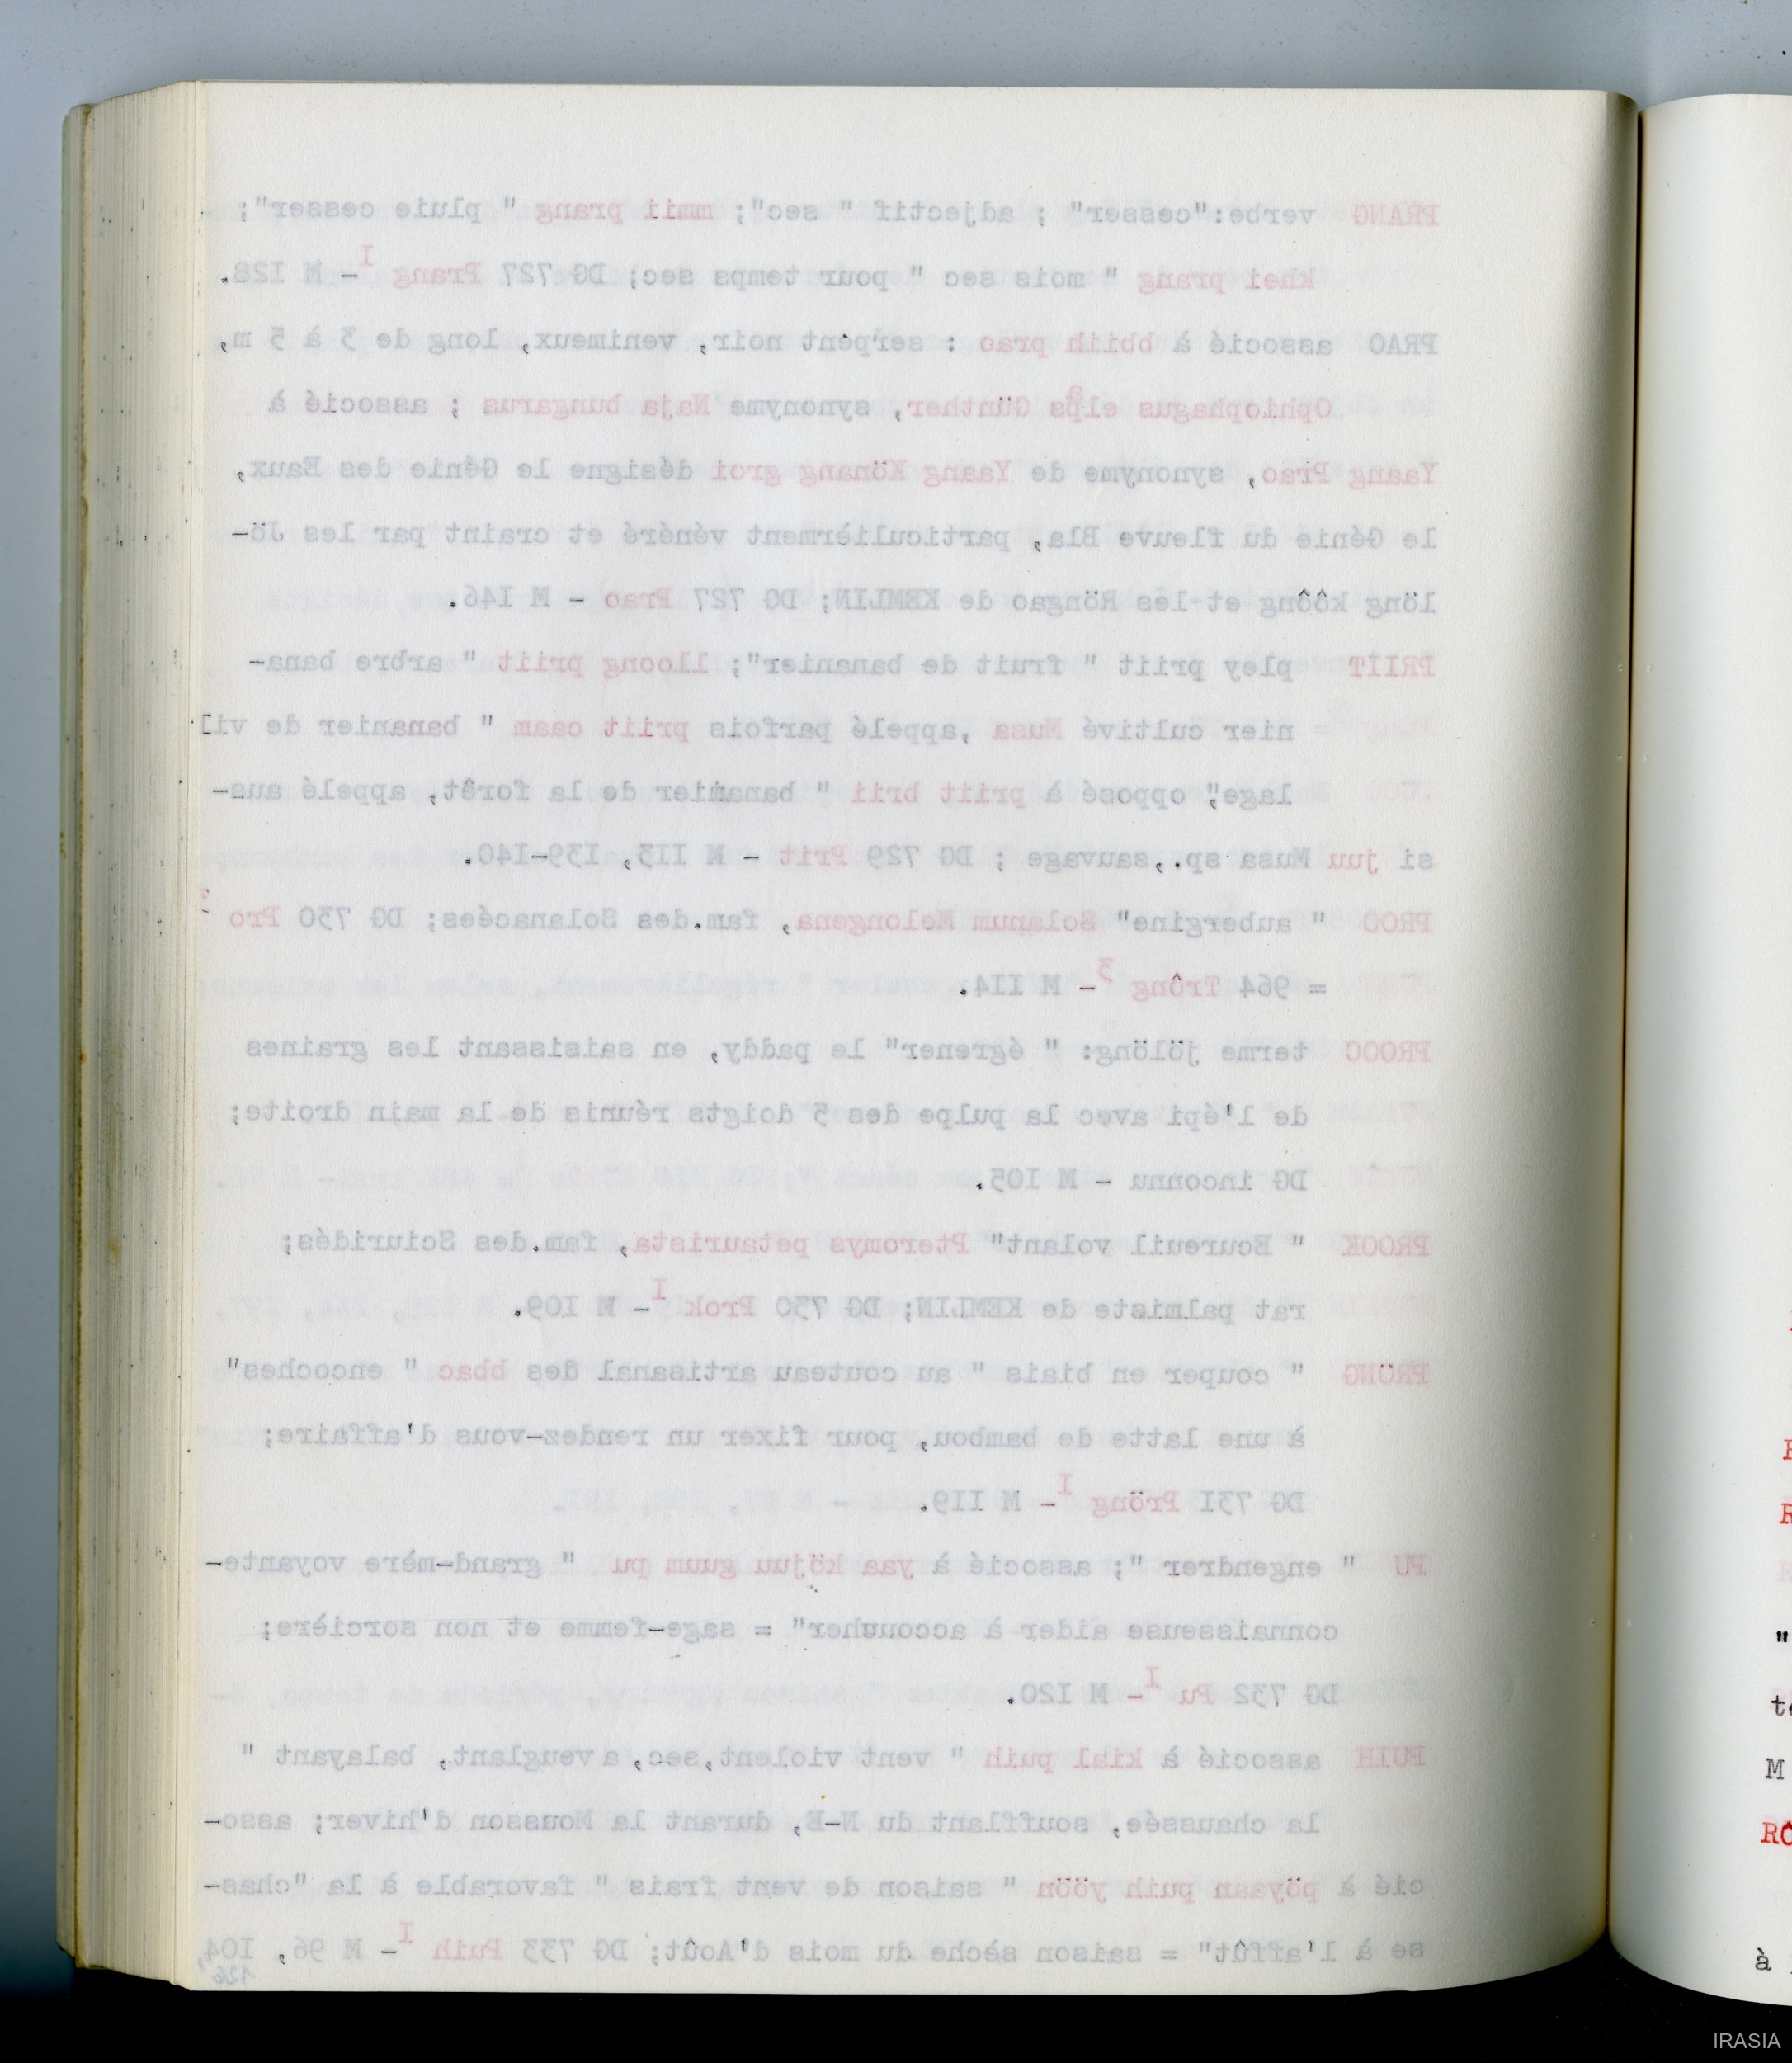 PRANG verbe:"cesser" ; adjectif " sec"; mmii prang " pluie cesser";
khei prang " mois sec " pour temps sec; DG 727 Prang I- M I28.
PRAO associé à bbiih prao : serpent noir, venimeux, long de 3 à 5 m,
Ophiophagus elaps Günther, synonyme Naja bungarus ; associé à
Yaang Prao, synonyme de Yaang Könang groi désigne le Génie des Eaux,
le Génie du fleuve Bla, particulièrment vénéré et craint par les Jö-
löng kôông et-les Röngao de KEMLIN; DG 727 Prao - M I46.
PRIIT pley priit " fruit de bananier"; lloong priit " arbre bana-
nier cultivé Musa ,appelé parfois priit caam " bananier de vil
lage", opposé à priit brii " bananier de la forêt, appelé aus-
si juu Musa sp.,sauvage ; DG 729 Prit - M II3, I39-I40.
PROO " aubergine" Solanum Melongena, fam.des Solanacées; DG 730 Pro 3
= 964 Trông 3- M II4.
PROOO terme jölöng: " égrener" le paddy, en saisissant les graines
de l'épi avec la pulpe des 5 doigts réunis de la main droite;
DG inconnu - M I05.
PROOK " Ecureuil volant" Pteromys petaurista, fam.des Sciuridés;
rat palmiste de KEMLIN; DG 730 Prok I- M I09.
PRÖNG " couper en biais " au couteau artisanal des bbac " encoches"
à une latte de bambou, pour fixer un rendez-vous d'affaire;
DG 73I Pröng I- M II9.
PU " engendrer "; associé à yaa köjuu guum pu " grand-mère voyante-
connaisseuse aider à accoucher" = sage-femme et non sorcière;
DG 732 Pu I- M I20.
PUIH associé à kial puih " vent violent,sec,aveuglant, balayant "
la chaussée, soufflant du N-E, durant la Mousson d'hiver; asso-
cié à pöyaan puih yöön " saison de vent frais " favorable à la "chas-
se à l'affût" = saison sèche du mois d'Août; DG 733 Puih I- M 96, I04,
126
R
"
M
RÔ
à
IRASIA